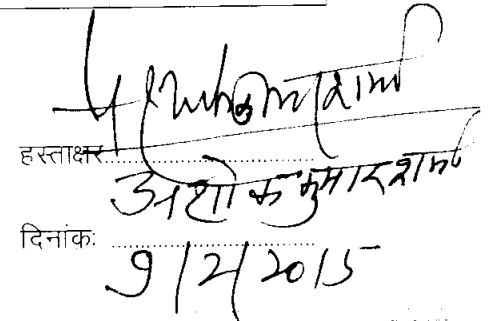 हस्ताक्षर
अशोक कुमार शर्मा
दिनांक:
9/2/2015